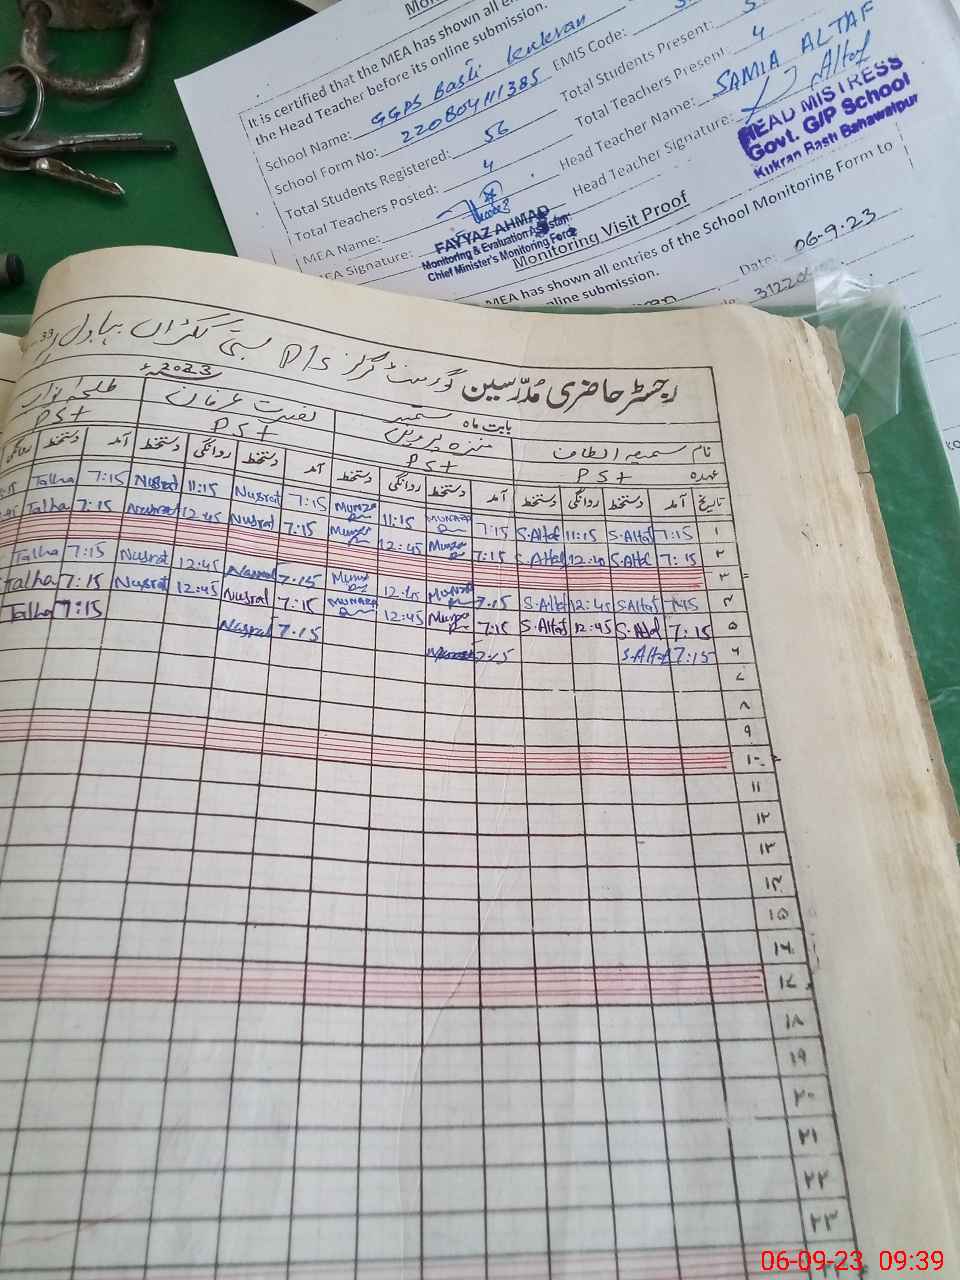 It is certified that the MEA has shown all en
the Head Teacher before its online submission.
School Name: GGPS Basti Kukran EMIS Code:
School Form No: 220804111385 Total Students Present:
Total Students Registered: 56 Total Teachers Present: 4
Total Teachers Posted: 4 Head Teacher Name: SAMIA ALTAF
MEA Name: Head Teacher Signature: Altaf
MEA Signature:
HEAD MISTRESS
Govt. G/P School
Kukran Basti Bahawalpur
FAYYAZ AHMAD
Monitoring & Evaluation Assistant
Chief Minister's Monitoring Force
Monitoring Visit Proof
MEA has shown all entries of the School Monitoring Form to
line submission.
Date: 06-9-23
رجسٹر حاضری مُدرّسین گورنمنٹ گرلز P/s بستی ککراں بہاول
بابت ماہ ستمبر 2023ء
نام سمیعہ الطاف
عہدہ PST PST PST PST
تاریخ آمد دستخط روانگی دستخط آمد دستخط روانگی دستخط آمد دستخط روانگی دستخط آمد دستخط روانگی
۱ 7:15 S.Altaf 11:15 S.Altaf 7:15 MUNAZA 11:15 Munaza 7:15 Nusrat 11:15 Nusrat 7:15 Talha
۲ 7:15 S.Altaf 12:40 S.Altaf 7:15 Munaza 12:45 Munaza 7:15 Nusrat 12:45 Nusrat 7:15 Talha
۳
۴ 7:45 S.Altaf 12:45 S.Altaf 7:15 Munaza 12:45 Munaza 7:15 Nusrat 12:45 Nusrat 7:15 Talha
۵ 7:15 S.Altaf 12:45 S.Altaf 7:15 Munaza 12:45 MUNAZA 7:15 Nusrat 12:45 Nusrat 7:15 Talha
۶ 7:15 S.Altaf 7:15 7:15 Nusrat 7:15 Talha
۷
۸
۹
۱۰
۱۱
۱۲
۱۳
۱۴
۱۵
۱۶
۱۷
۱۸
۱۹
۲۰
۲۱
۲۲
۲۳
06-09-23 09:39